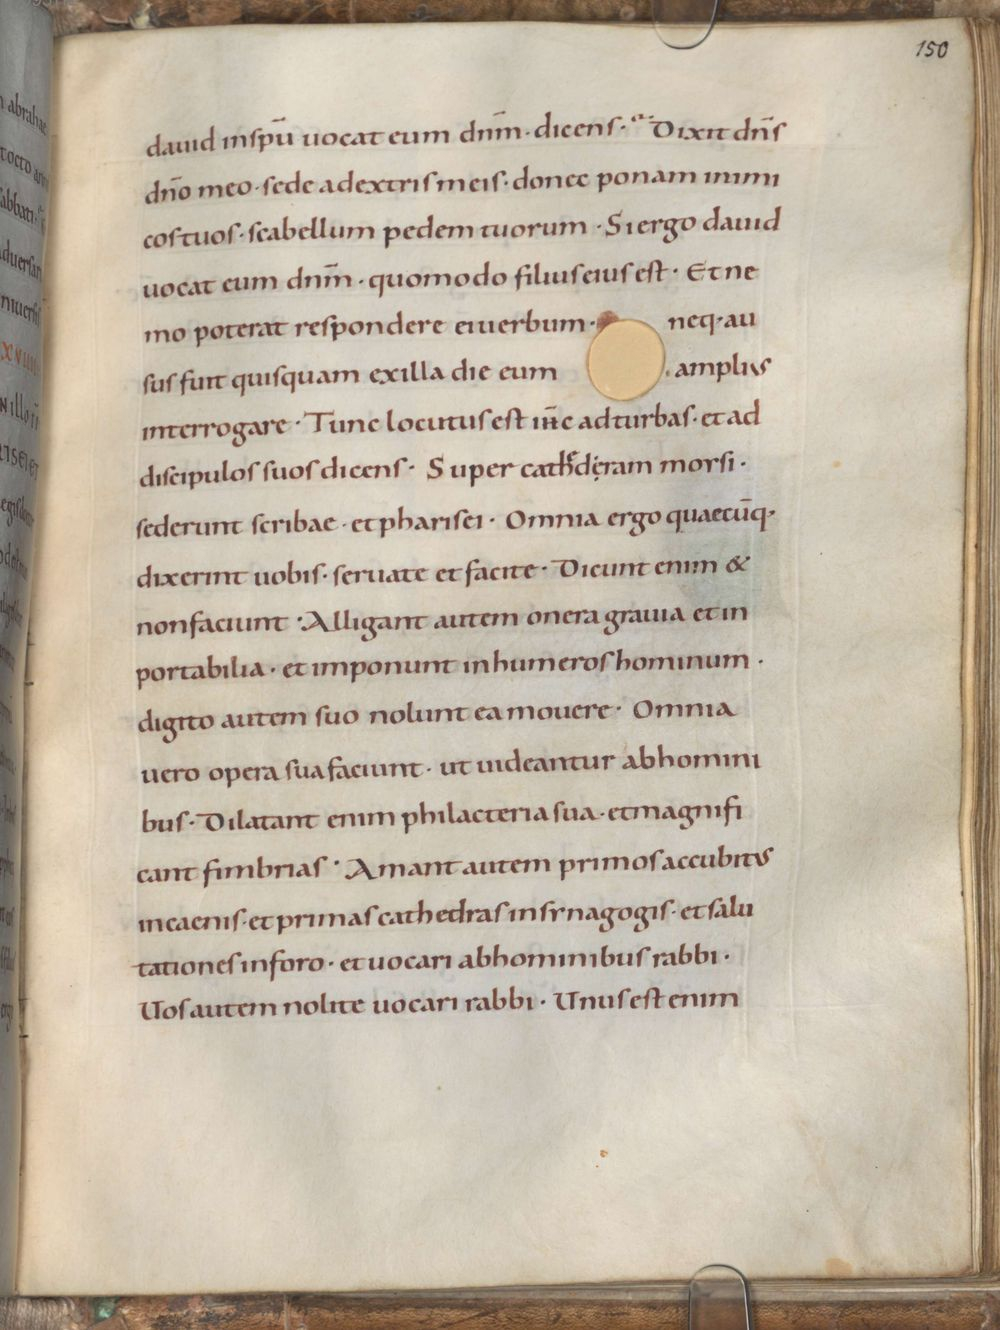 150
dauid inspū uocat eum dnm̄ · dicens · Dixit dn̄s
dn̄o meo · sede adextris meis · donec ponam inimi
cos tuos · scabellum pedem tuorum · Si ergo dauid
uocat eum dnm̄ · quomodo filius eius est · Et ne
mo poterat respondere ei uerbum · neq · au
sus fuit quisquam exilla die eum amplius
interrogare · Tunc locutus est adturbas · et ad
discipulos suos dicens · Super morsi ·
sederunt scribae · et pharisei · Omnia ergo quaecūq ·
dixerint uobis · seruate et facite · Dicunt enim &
non faciunt · Alligant autem onera grauia et in
portabilia · et imponunt inhumeros hominum ·
digito autem suo nolunt ea mouere · Omnia
uero opera sua faciunt · ut uideantur abhomini
bus · Dilatant enim philacteria sua · et magnifi
cant fimbrias · Amant autem primos accubitus
incaenis · et primas cathedras insynagogis · et salu
tationes inforo · et uocari abhominibus rabbi ·
Uos autem nolite uocari rabbi · Unus est enim